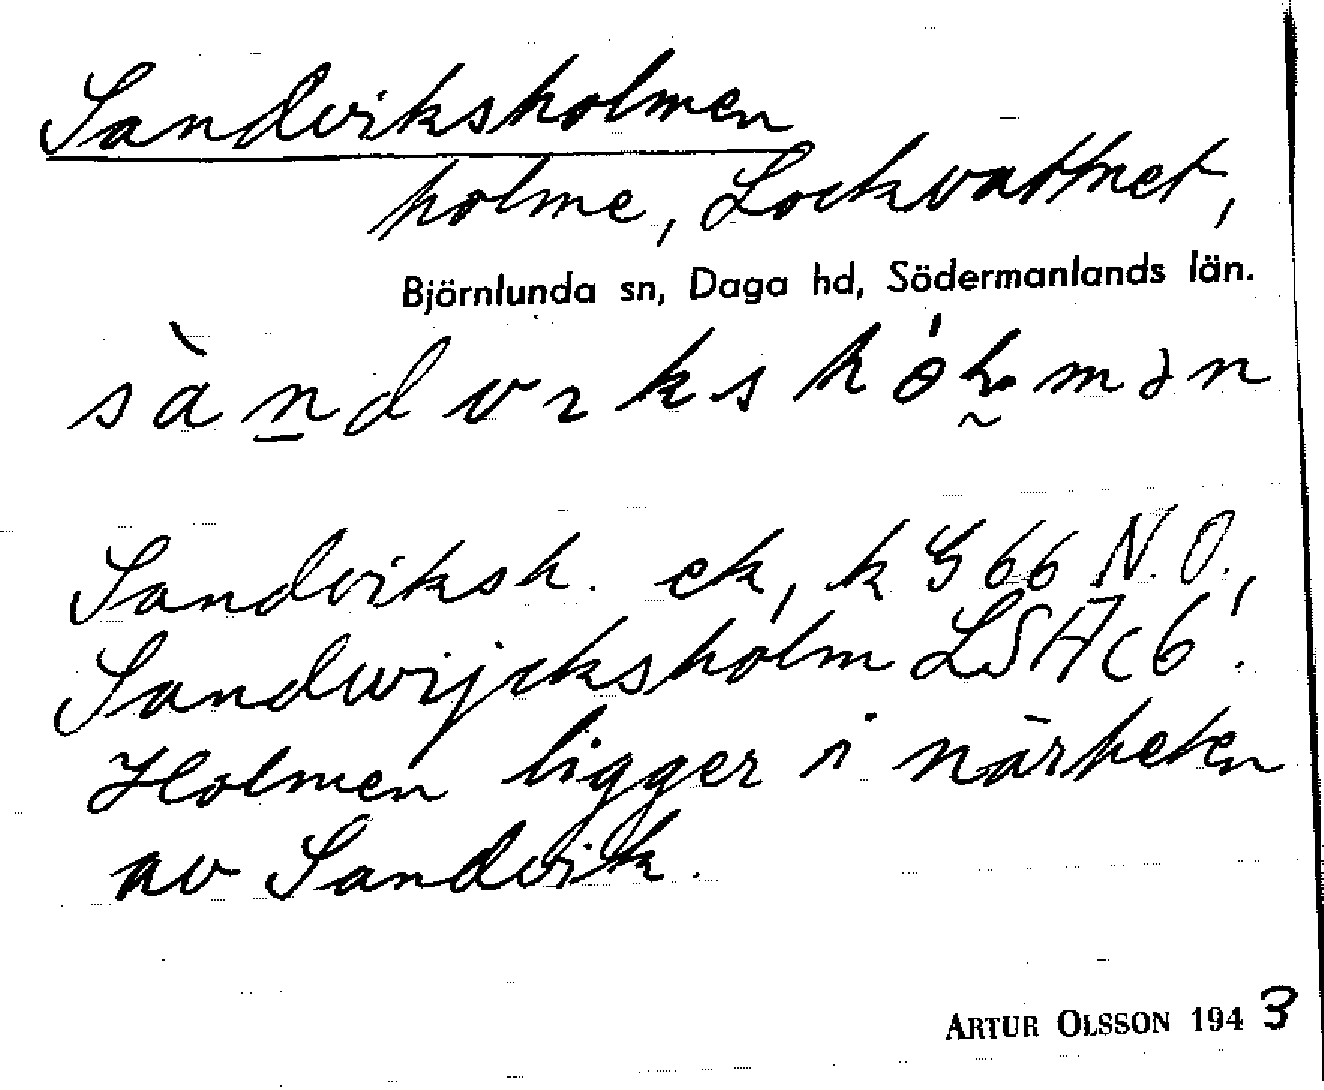 Sandviksholmen
holme, Lockvattnet,
Björnlunda sn, Daga hd, Södermanlands län.
Sandviksh. ek, k G 66 N.O.,
Sandwijcksholm LSA C6.
Holmen ligger i närheten
av Sandvik.
ARTUR OLSSON 1943